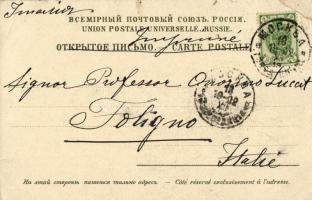 Италія
ВСЕМІРНЫЙ ПОЧТОВЫЙ СОЮЗЪ. РОССІЯ.
UNION POSTALE UNIVERSELLE. RUSSIE.
ОТКРЫТОЕ ПИСЬМО. CARTE POSTALE
Imprimé
МОСКВА
Signor Professor
Foligno
Italie
На этой сторонѣ пишется только адресъ. — Côté réservé exclusivement à l'adresse.